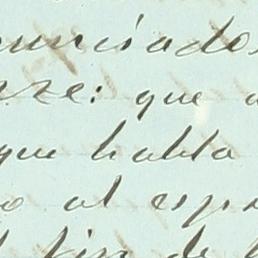 unciados
se: que
que habla
o al esp
fin de